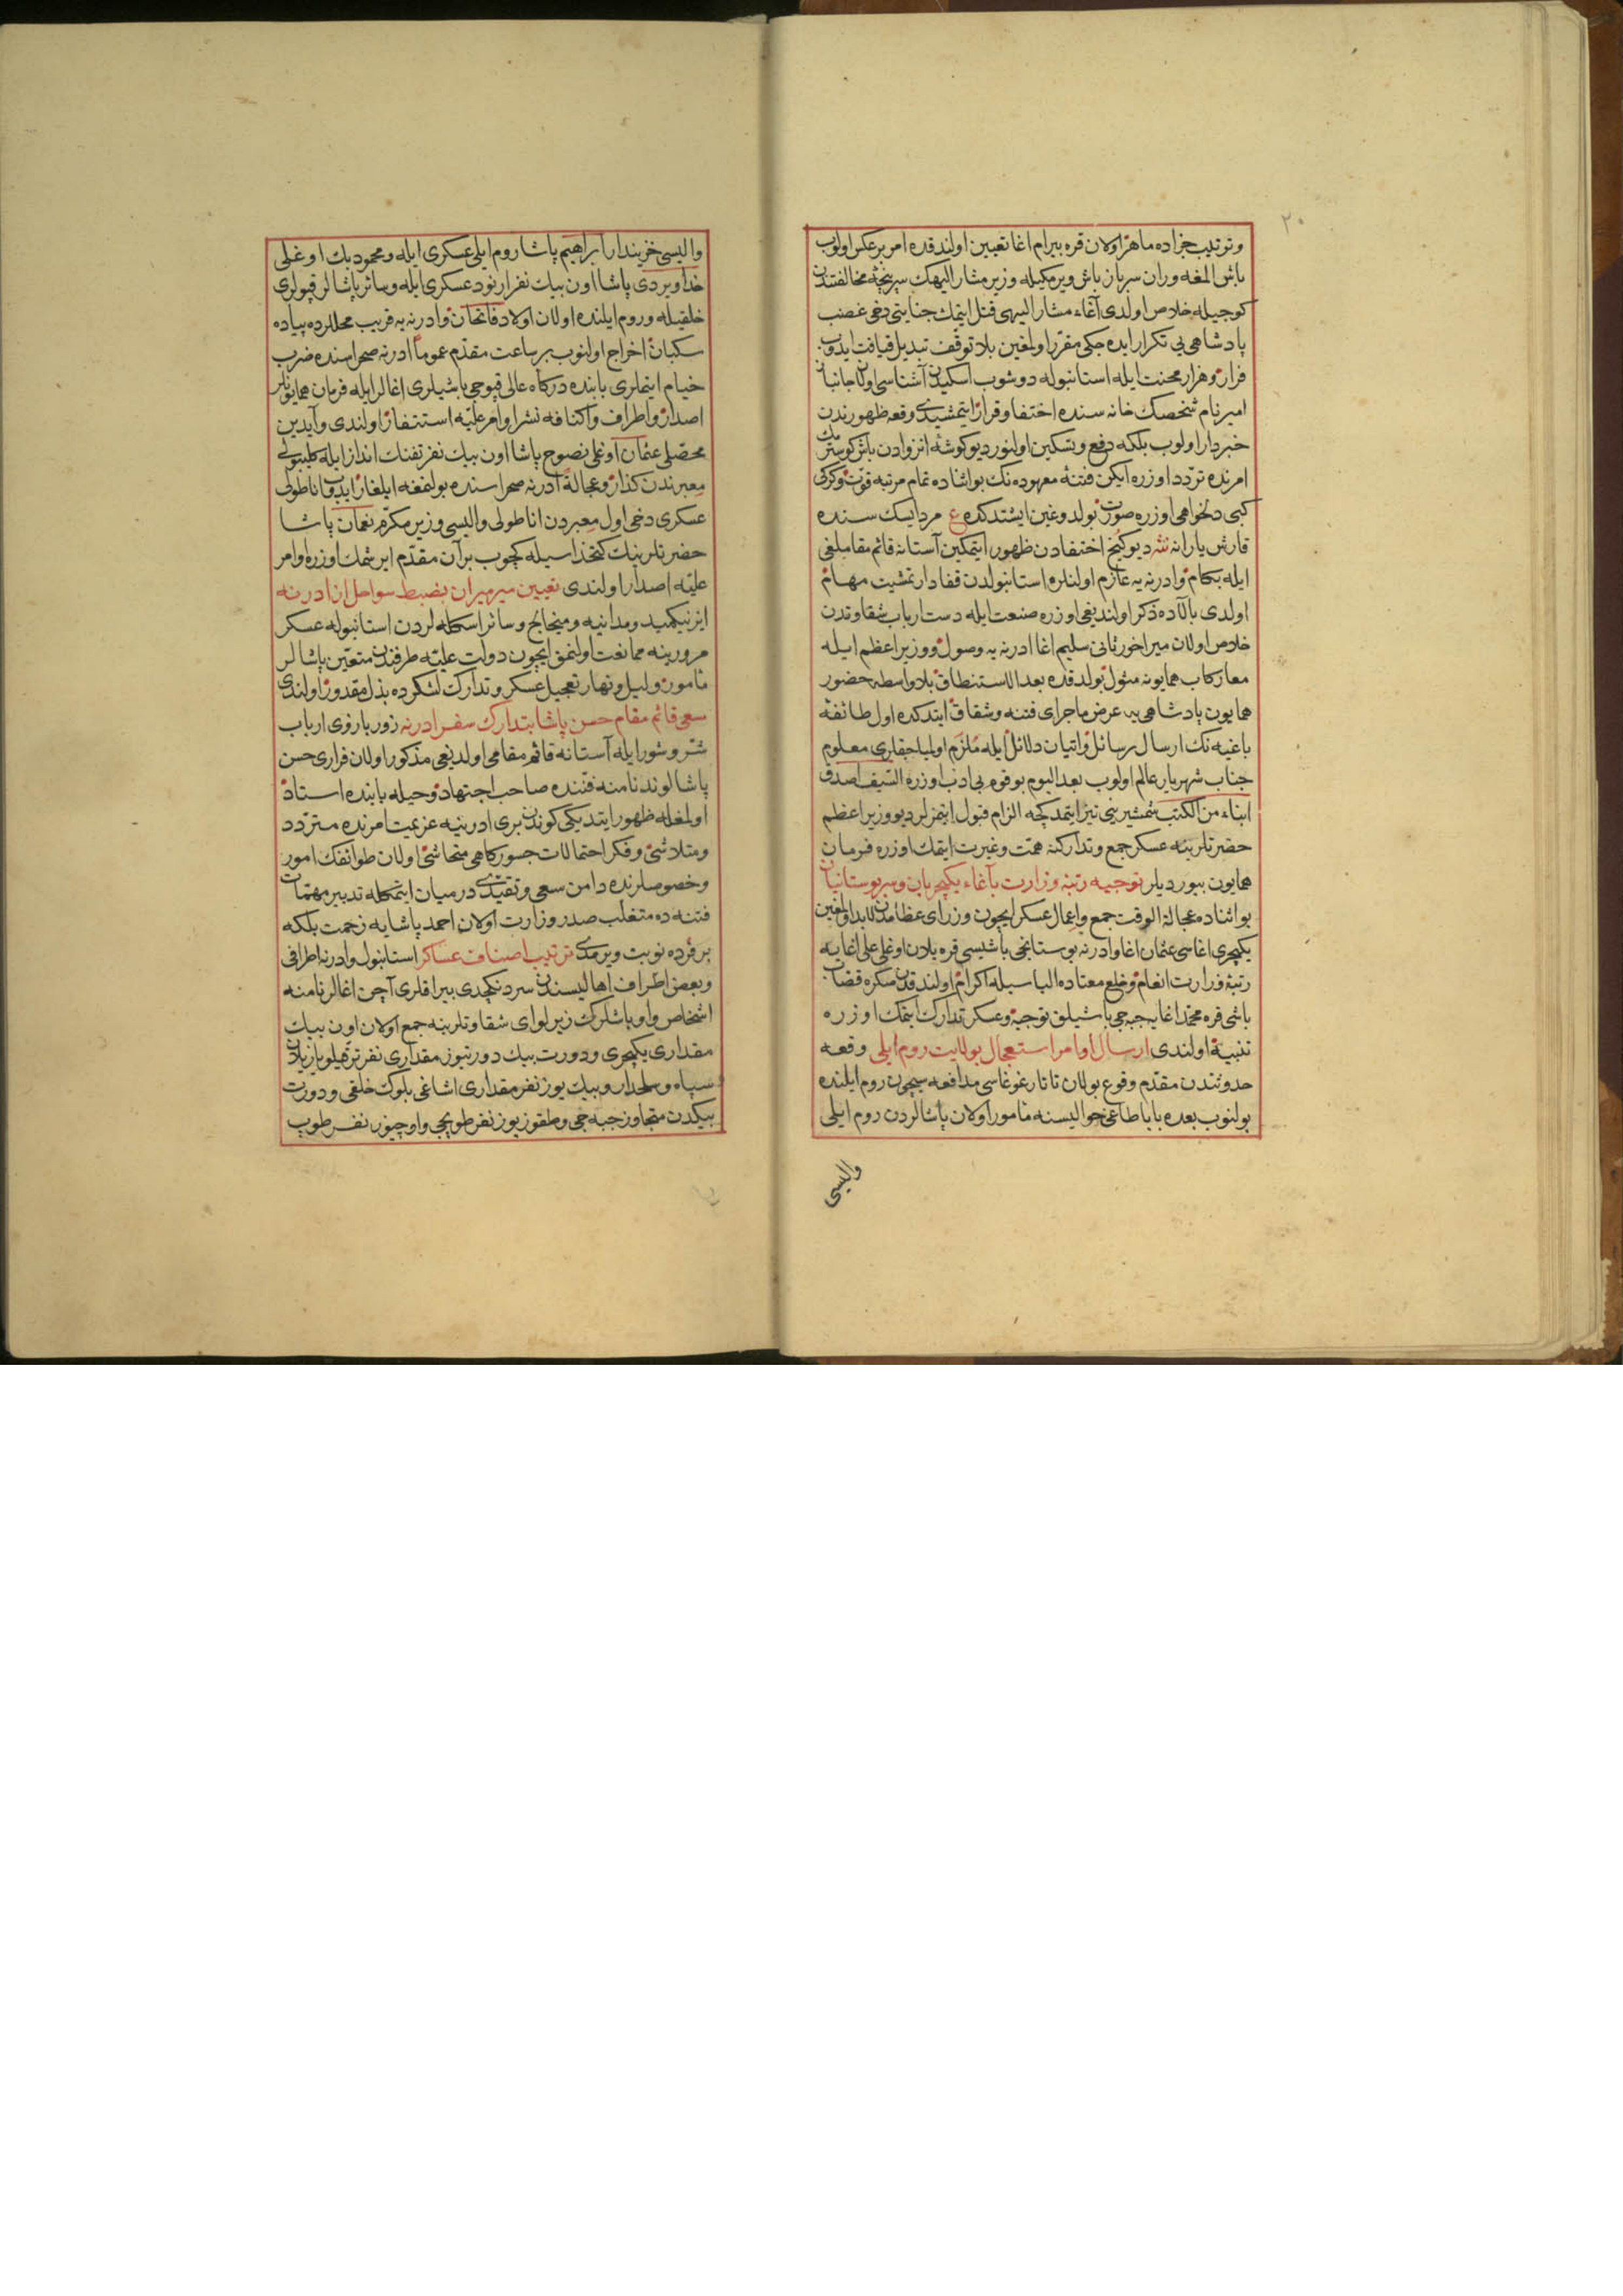 ٢٠
وترتيب جزاده ماهر اولان قره بيرام اغا تعيين اولندقده امر برعكس اولوب
باش المغه وران سرباز باش ويرمكيله وزير مشار اليهك سرپنجهٔ مخالفتندن
كوجيله خلاص اولدى آغاء مشار اليهى قتل ايتمك جنايتى دخى غضب
پادشاهى يى تكرار ايده جكى مقرر اولمغين بلا توقف تبديل قيافت ايدوب
فرار وهزار محنت ايله استانبوله دوشوب اسكيدن آشناسى اولان جانباز
امير نام شخصك خانه سنده اختفا وقرار ايتمشيدى وقعه ظهورندن
خبردار اولوب بلكه دفع وتسكين اولنور ديو كوشهٔ انزوادن باش كوسترمك
امرنده تردد اوزره ايكن فتنهٔ معهوده نك بو اثناده تمام مرتبه قوت وكركى
كبى دلخواهى اوزره صورت بولدوغين ايشتدكده ع مرد ايسك سنده
قارش يارانه نثه ديو كنج اختفادن ظهور ايتمكين آستانه قائم مقاملغى
ايله بكام وادرنه يه عازم اولنلره استانبولدن قفادار تمشيت مهام
اولدى بالاده ذكر اولنديغى اوزره صنعت ايله دست ارباب شقاوتدن
خلاص اولان ميراخور ثانى سليم اغا ادرنه يه وصول ووزير اعظم ايله
معا ركاب همايونه مثول بولدقده بعد الاستنطاق بلا واسطه حضور
همايون پادشاهى يه عرض ماجراى فتنه وشقاق ايتدكده اول طائفهٔ
باغيه نك ارسال رسائل واتيان دلائل ايله ملزم اوليا جقلرى معلوم
جناب شهريار عالم اولوب بعد اليوم بو قوم بى ادب اوزره السيف اصدق
انباء من الكتب شمشيرينى تيز ايتمدكجه الزام قبول ايتمزلر ديو وزير اعظم
حضرتلرينه عسكر جمع وتداركنه همت وغيرت ايتمك اوزره فرمان
همايون بيورديلر توجيه رتبهٔ وزارت بآغاء يكيچريان وسر بوستانيان
بو اثناده عجالة الوقت جمع واعمال عسكر ايچون وزراى عظامدن لابد اولمغين
يكيچرى اغاسى عثمان اغا وادرنه بوستانجى باشيسى قره يلان اوغلى على اغايه
رتبهٔ وزارت انعام وخلع معتاده الباسيله اكرام اولندقدن صكره قصاب
باشى قره محمد اغايه جبه جى باشيلق توجيه وعسكر تدارك ايتمك اوزره
تنبيه اولندى ارسال اوامر استعجال بولايت روم ايلى وقعه
حدوثندن مقدم وقوع بولان تاتار غوغاسى مدافعه سيچون روم ايلنده
بولنوب بعده بابا طاغى حواليسنه مأمور اولان پاشالردن روم ايلى
واليسى
واليسى خزيندار ابراهيم پاشا روم ايلى عسكرى ايله ومحمود بك اوغلى
خداويردى پاشا اون بيك نفر ارنود عسكرى ايله وسائر پاشالر قپولرى
خلقيله وروم ايلنده اولان اولاد فاتحان وادرنه يه قريب محللرده پياده
سكبان اخراج اولنوب بر ساعت مقدم عموما ادرنه صحراسنده ضرب
خيام ايتملرى بابنده دركاه عالى قپوجى باشيلرى اغالر ايله فرمان همايونلر
اصدار واطراف واكنافه نشر اوامر عليه استنفار اولندى وآيدين
محصلى عثمان اوغلى نصوح پاشا اون بيك نفر تفنك انداز ايله كليبولى
معبرندن كذار وعجالة ادرنه صحراسنده بولنمغه ايلغار ايدوب اناطولى
عسكرى دخى اول معبردن اناطولى واليسى وزير مكرم نعمان پاشا
حضرتلرينك كتخداسيله كچوب بر آن مقدم ايرشمك اوزره اوامر
عليه اصدار اولندى تعيين ميرميران بضبط سواحل از ادرنه
ازنيكميد ومدانيه وميخاليج وسائر اسكله لردن استانبوله عسكر
مرورينه ممانعت اولنمق ايچون دولت عليه طرفندن متعين پاشالر
مأمور وليل ونهار تعجيل عسكر وتدارك لشكرده بذل مقدور اولندى
سعى قائم مقام حسن پاشا بتدارك سفر ادرنه زور باروى ارباب
شر وشور ايله آستانه قائم مقامى اولديغى مذكور اولان فرارى حسن
پاشا لوند نامنه فتنده صاحب اجتهاد وحيله بابنده استاد
اولمغله ظهور ايتديكى كوندن برى ادرنيه عزيمت امرنده متردد
ومتلاشى وفكر احتمالات جسوركاهى متحاشى اولان طوائفك امور
وخصوصلرنده دامن سعى وتقيدى درميان ايتمكله تدبير مهمات
فتنه ده متغلب صدر وزارت اولان احمد پاشايه زحمت بلكه
بر فرده نوبت ويرمدى ترتيب اصناف عساكر استانبول وادرنه اطرافى
وبعض اطراف اهاليسندن سردنكچدى بيراقلرى آچن اغالر نامنه
اشخاص واوباشلرك زير لواى شقاوتلرينه جمع اولان اون بيك
مقدارى يكيچرى ودورت بيك دورتيوز مقدارى نفر ترقيلو يازيلان
سپاه وسلحدار وبيك يوز نفر مقدارى اشاغى بلوك خلقى ودورت
بيكدن متجاوز جبه جى وطقوز يوز نفر طوپجى واوچيوز نفر طوپ